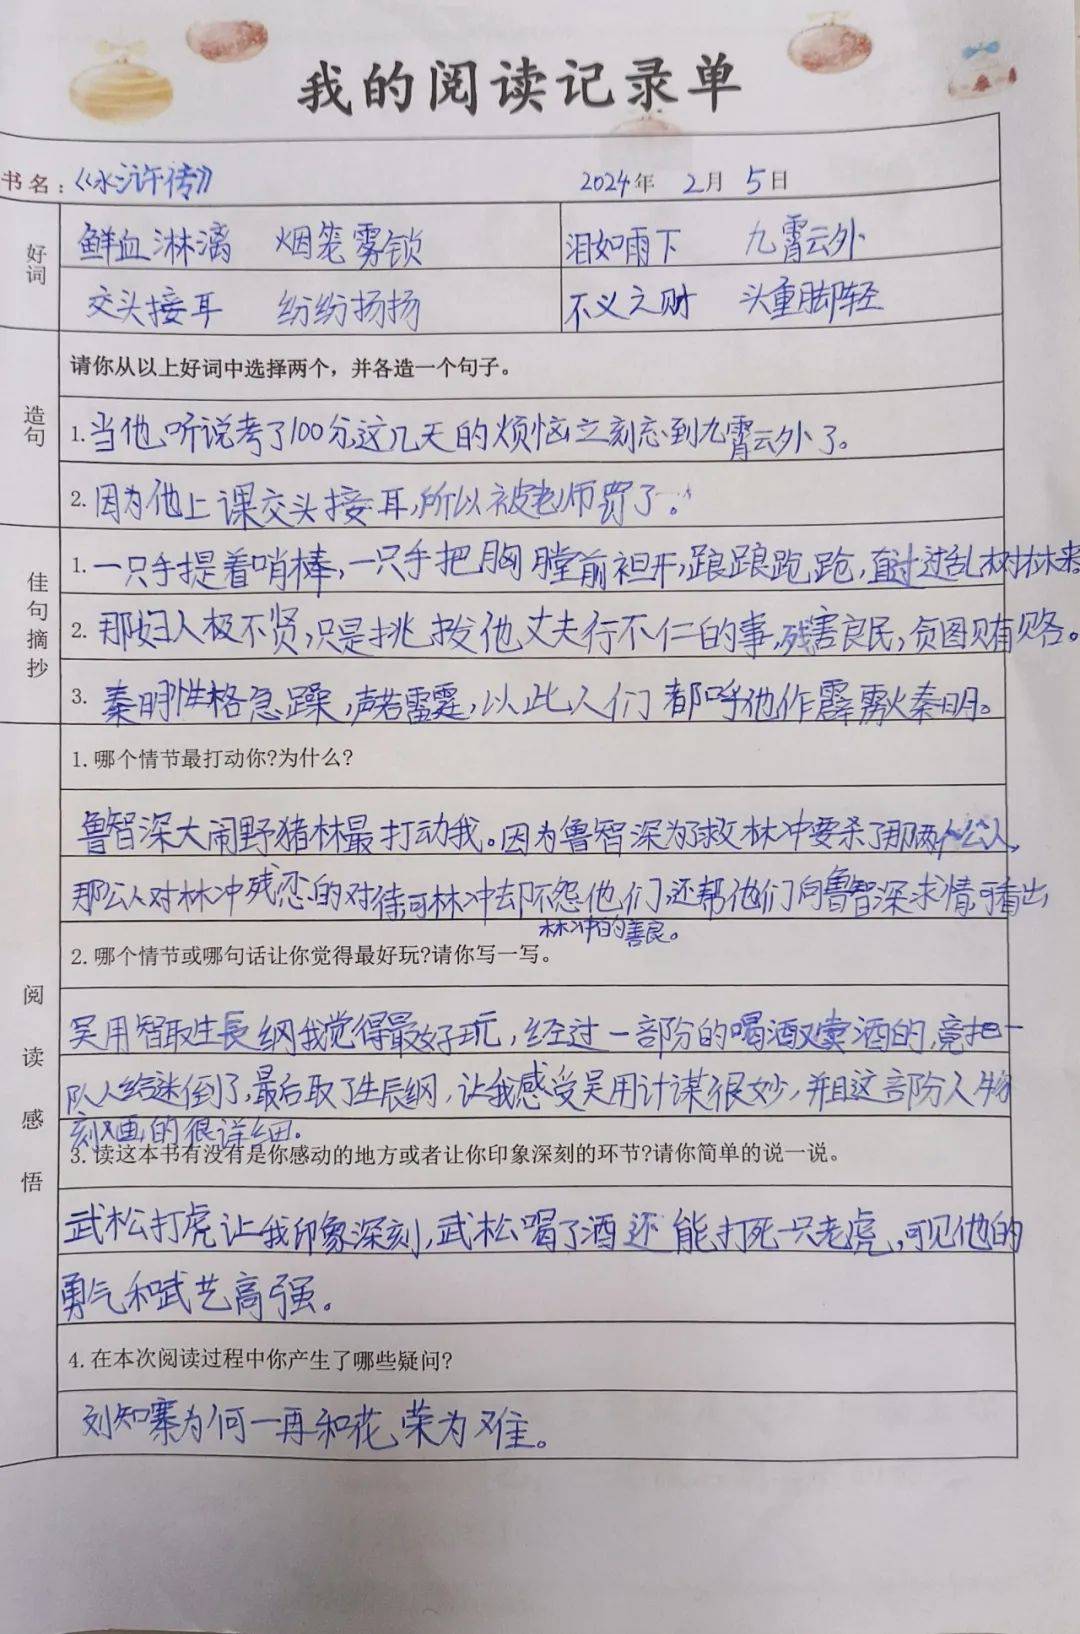 我的阅读记录单
书名：《水浒传》 2024年 2月 5日
好词
鲜血淋漓 烟笼雾锁 泪如雨下 九霄云外
交头接耳 纷纷扬扬 不义之财 头重脚轻
造句
请你从以上好词中选择两个，并各造一个句子。
1.当他听说考了100分这几天的烦恼立刻忘到九霄云外了。
2.因为他上课交头接耳,所以被老师罚了。
佳句摘抄
1.一只手提着哨棒,一只手把胸膛前袒开,踉踉跄跄,直过乱树林来。
2.那妇人极不贤,只是挑拨他丈夫行不仁的事,残害良民,贪图贿赂。
3.秦明性格急躁,声若雷霆,以此人们都呼他作霹雳火秦明。
阅读感悟
1.哪个情节最打动你?为什么?
鲁智深大闹野猪林最打动我。因为鲁智深为了救林冲要杀了那两个公人,
那公人对林冲残忍的对待可林冲却不怨他们还帮他们向鲁智深求情可看出
林冲的善良。
2.哪个情节或哪句话让你觉得最好玩?请你写一写。
吴用智取生辰纲我觉得最好玩,经过一部份的喝酒又卖酒的,竟把一
队人给迷倒了,最后取了生辰纲,让我感受吴用计谋很妙,并且这部分人物
刻画的很详细.
3.读这本书有没有是你感动的地方或者让你印象深刻的环节?请你简单的说一说。
武松打虎让我印象深刻,武松喝了酒还能打死一只老虎,可见他的
勇气和武艺高强。
4.在本次阅读过程中你产生了哪些疑问?
刘知寨为何一再和花荣为难。